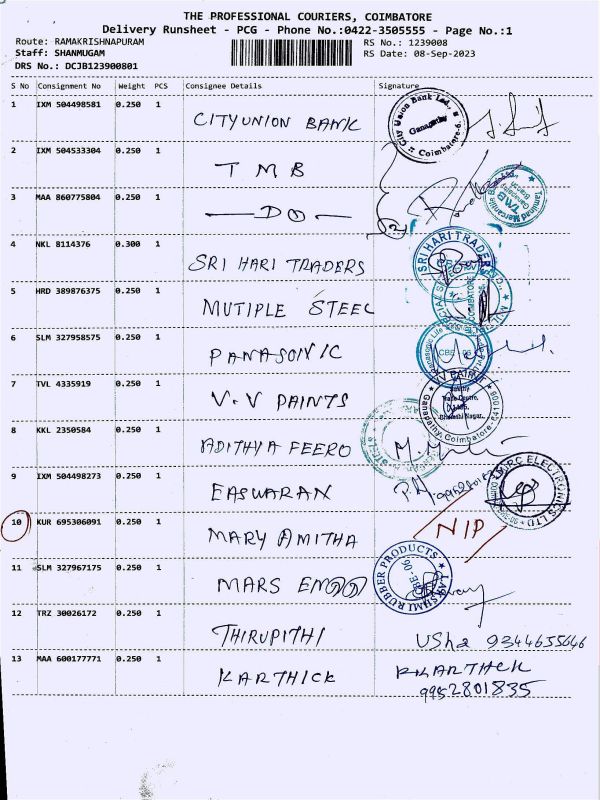 THE PROFESSIONAL COURIERS, COIMBATORE
Delivery Runsheet - PCG - Phone No.:0422-3505555 - Page No.:1
Route: RAMAKRISHNAPURAM RS No.: 1239008
Staff: SHANMUGAM RS Date: 08-Sep-2023
DRS No.: DCJB123900801
S No Consignment No Weight PCS Consignee Details Signature
1 IXM 504498581 0.250 1 CITYUNION BANK City Union Bank Ltd., Ganapathy Coimbatore-6.
2 IXM 504533304 0.250 1 TMB
3 MAA 860775804 0.250 1 —DO— Tamilnad Mercantile TMB Ganapathy Branch
4 NKL 8114376 0.300 1 SRI HARI TRADERS SRI HARI TRADERS
5 HRD 389876375 0.250 1 MUTIPLE STEEL COIMBATORE
6 SLM 327958575 0.250 1 PANASONIC Panasonic Life CBE
7 TVL 4335919 0.250 1 V.V PAINTS Ganapathy, Coimbatore-
8 KKL 2350584 0.250 1 ADITHYA FEERO
9 IXM 504498273 0.250 1 EASWARAN ELECTRONICS LTD
10 KUR 695306091 0.250 1 MARY AMITHA NIP
11 SLM 327967175 0.250 1 MARS LAKSHMI RUBBER PRODUCTS CBE-06
12 TRZ 30026172 0.250 1 THIRUPITHI USha 9344655646
13 MAA 600177771 0.250 1 KARTHICK
9952801835